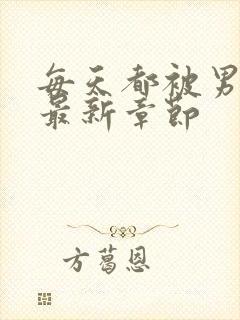 每天都被男
最新章节
方葛恩